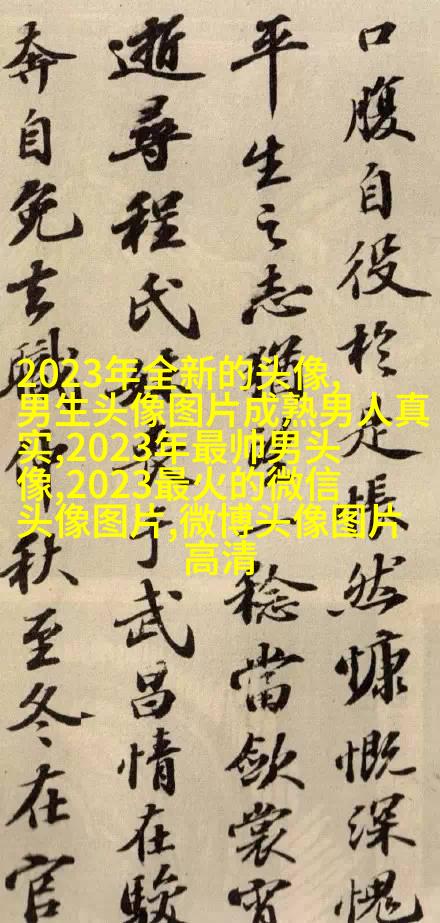 口腹自役於是悵然慷慨深愧
平生之志猶望一稔當斂裳宵
逝尋程氏妹喪于武昌情在駿
奔自免去職仲秋至冬在官
2023年全新的头像,
男生头像图片成熟男人真
实,2023年最帅男头
像,2023最火的微信
头像图片,微博头像图片
高清